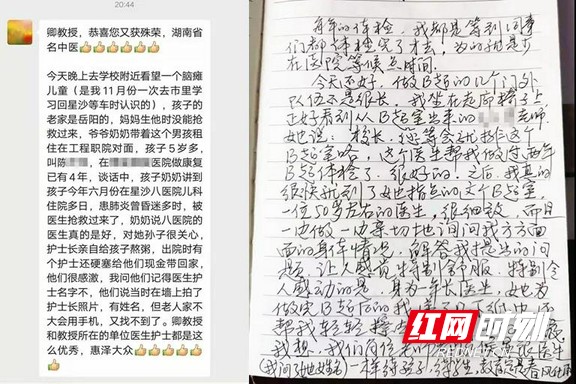 20:44
卿教授，恭喜您又获殊荣，湖南省
名中医
今天晚上去学校附近看望一个脑瘫
儿童（是我11月份一次去市里学
习回星沙等车时认识的），孩子的
老家是岳阳的，妈妈生他时没能抢
救过来，爷爷奶奶带着这个男孩租
住在工程职院对面，孩子5岁多，
叫陈
，在
医院做康复
已有4年，谈话中，孩子奶奶讲到
孩子今年六月份在星沙八医院儿科
住院多日，患肺炎曾昏迷多时，被
医生抢救过来了，奶奶说八医院的
医生真的是好，对她孙子很关心，
护士长亲自给孩子熬粥，出院时有
个护士还硬塞给他们现金带回家，
他们很感激，我问他们记得医生护
士名字不，他们说当时在墙上拍了
护士长照片，有姓名，但老人家不
大会用手机，又找不到了。卿教授
和教授所在的单位医生护士都是这
么优秀，惠泽大众
每年的体检，我都是等到同事
们都体检完了才去，为的就是少
在医院等候点时间。
今天还好，做B超的几个门外
队伍还不是很长，我坐在走廊椅子上
正好看到从B超室出来的
老师
她说：校长，您等会还找这个
B超室咯，这个医生帮我做过两年
B超体检了，很好的。之后，我真的
很快就到了她指点的这个B超室，
一位50岁左右的医生，很细致，而且
一边做一边亲切地询问我方方面
面的身体情况，解答我提出的问
题，让人感觉特别舒服。特别令
人感动的是，身为一年长医生，她为
做完B超后的我
帮我轻轻
我想，我们
（我问了她姓名）一样待孩子
红网时刻